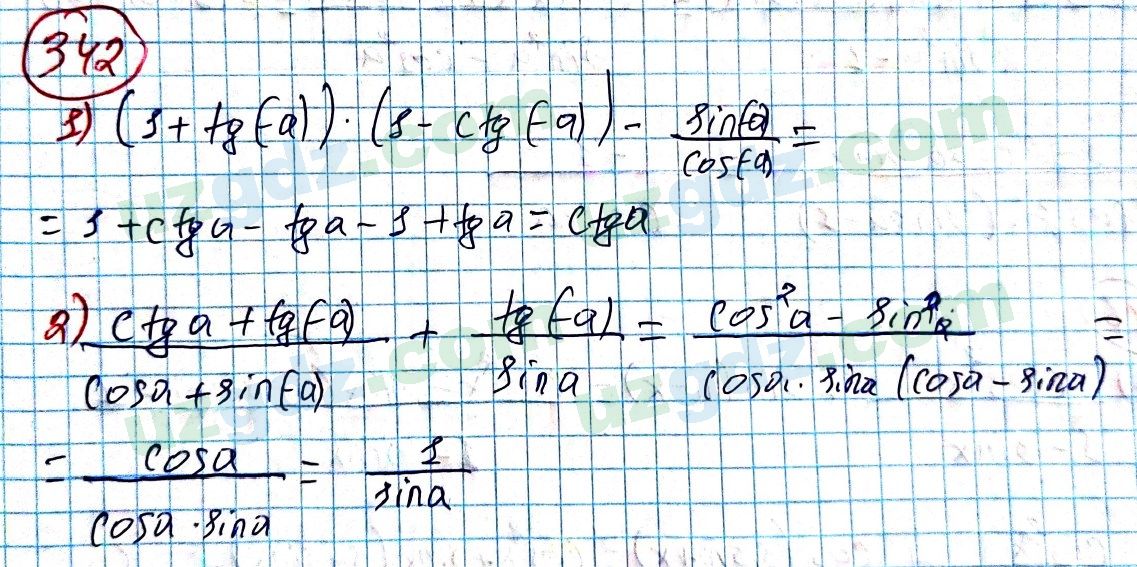 342
1) (1 + tg(-a)) · (1 - ctg(-a)) - sin(-a)/cos(-a) =
= 1 + ctga - tga - 1 + tga = ctga
2) (ctga + tg(-a))/(cosa + sin(-a)) + tg(-a)/sina = (cos²a - sin²a)/(cosa · sina (cosa - sina)) =
= cosa/(cosa · sina) = 1/sina
uzgdz.com
uzgdz.com
uzgdz.com
uzgdz.com